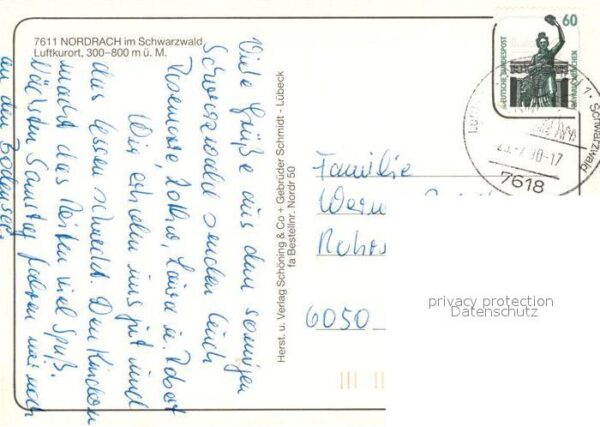 7611 NORDRACH im Schwarzwald
Luftkurort, 300–800 m ü. M.
Viele Grüße aus dem sonnigen
Schwarzwald senden Euch
Rosemarie, Lothar, Laura u. Robert
Wir erholen uns gut und
das Essen schmeckt. Den Kindern
macht das Reiten viel Spaß.
Nächsten Samstag fahren wir noch
an den Bodensee.
Herst. u. Verlag Schöning & Co + Gebrüder Schmidt - Lübeck
fa Bestellnr. Nordr 50
60
DEUTSCHE BUNDESPOST
MÜNCHEN
Schwarzwald
90-17
7618
Familie
6050
privacy protection
Datenschutz